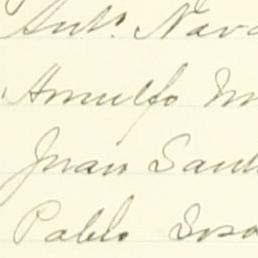 Anto. Nava
Arnulfo M
Juan Sant
Pablo Sosa